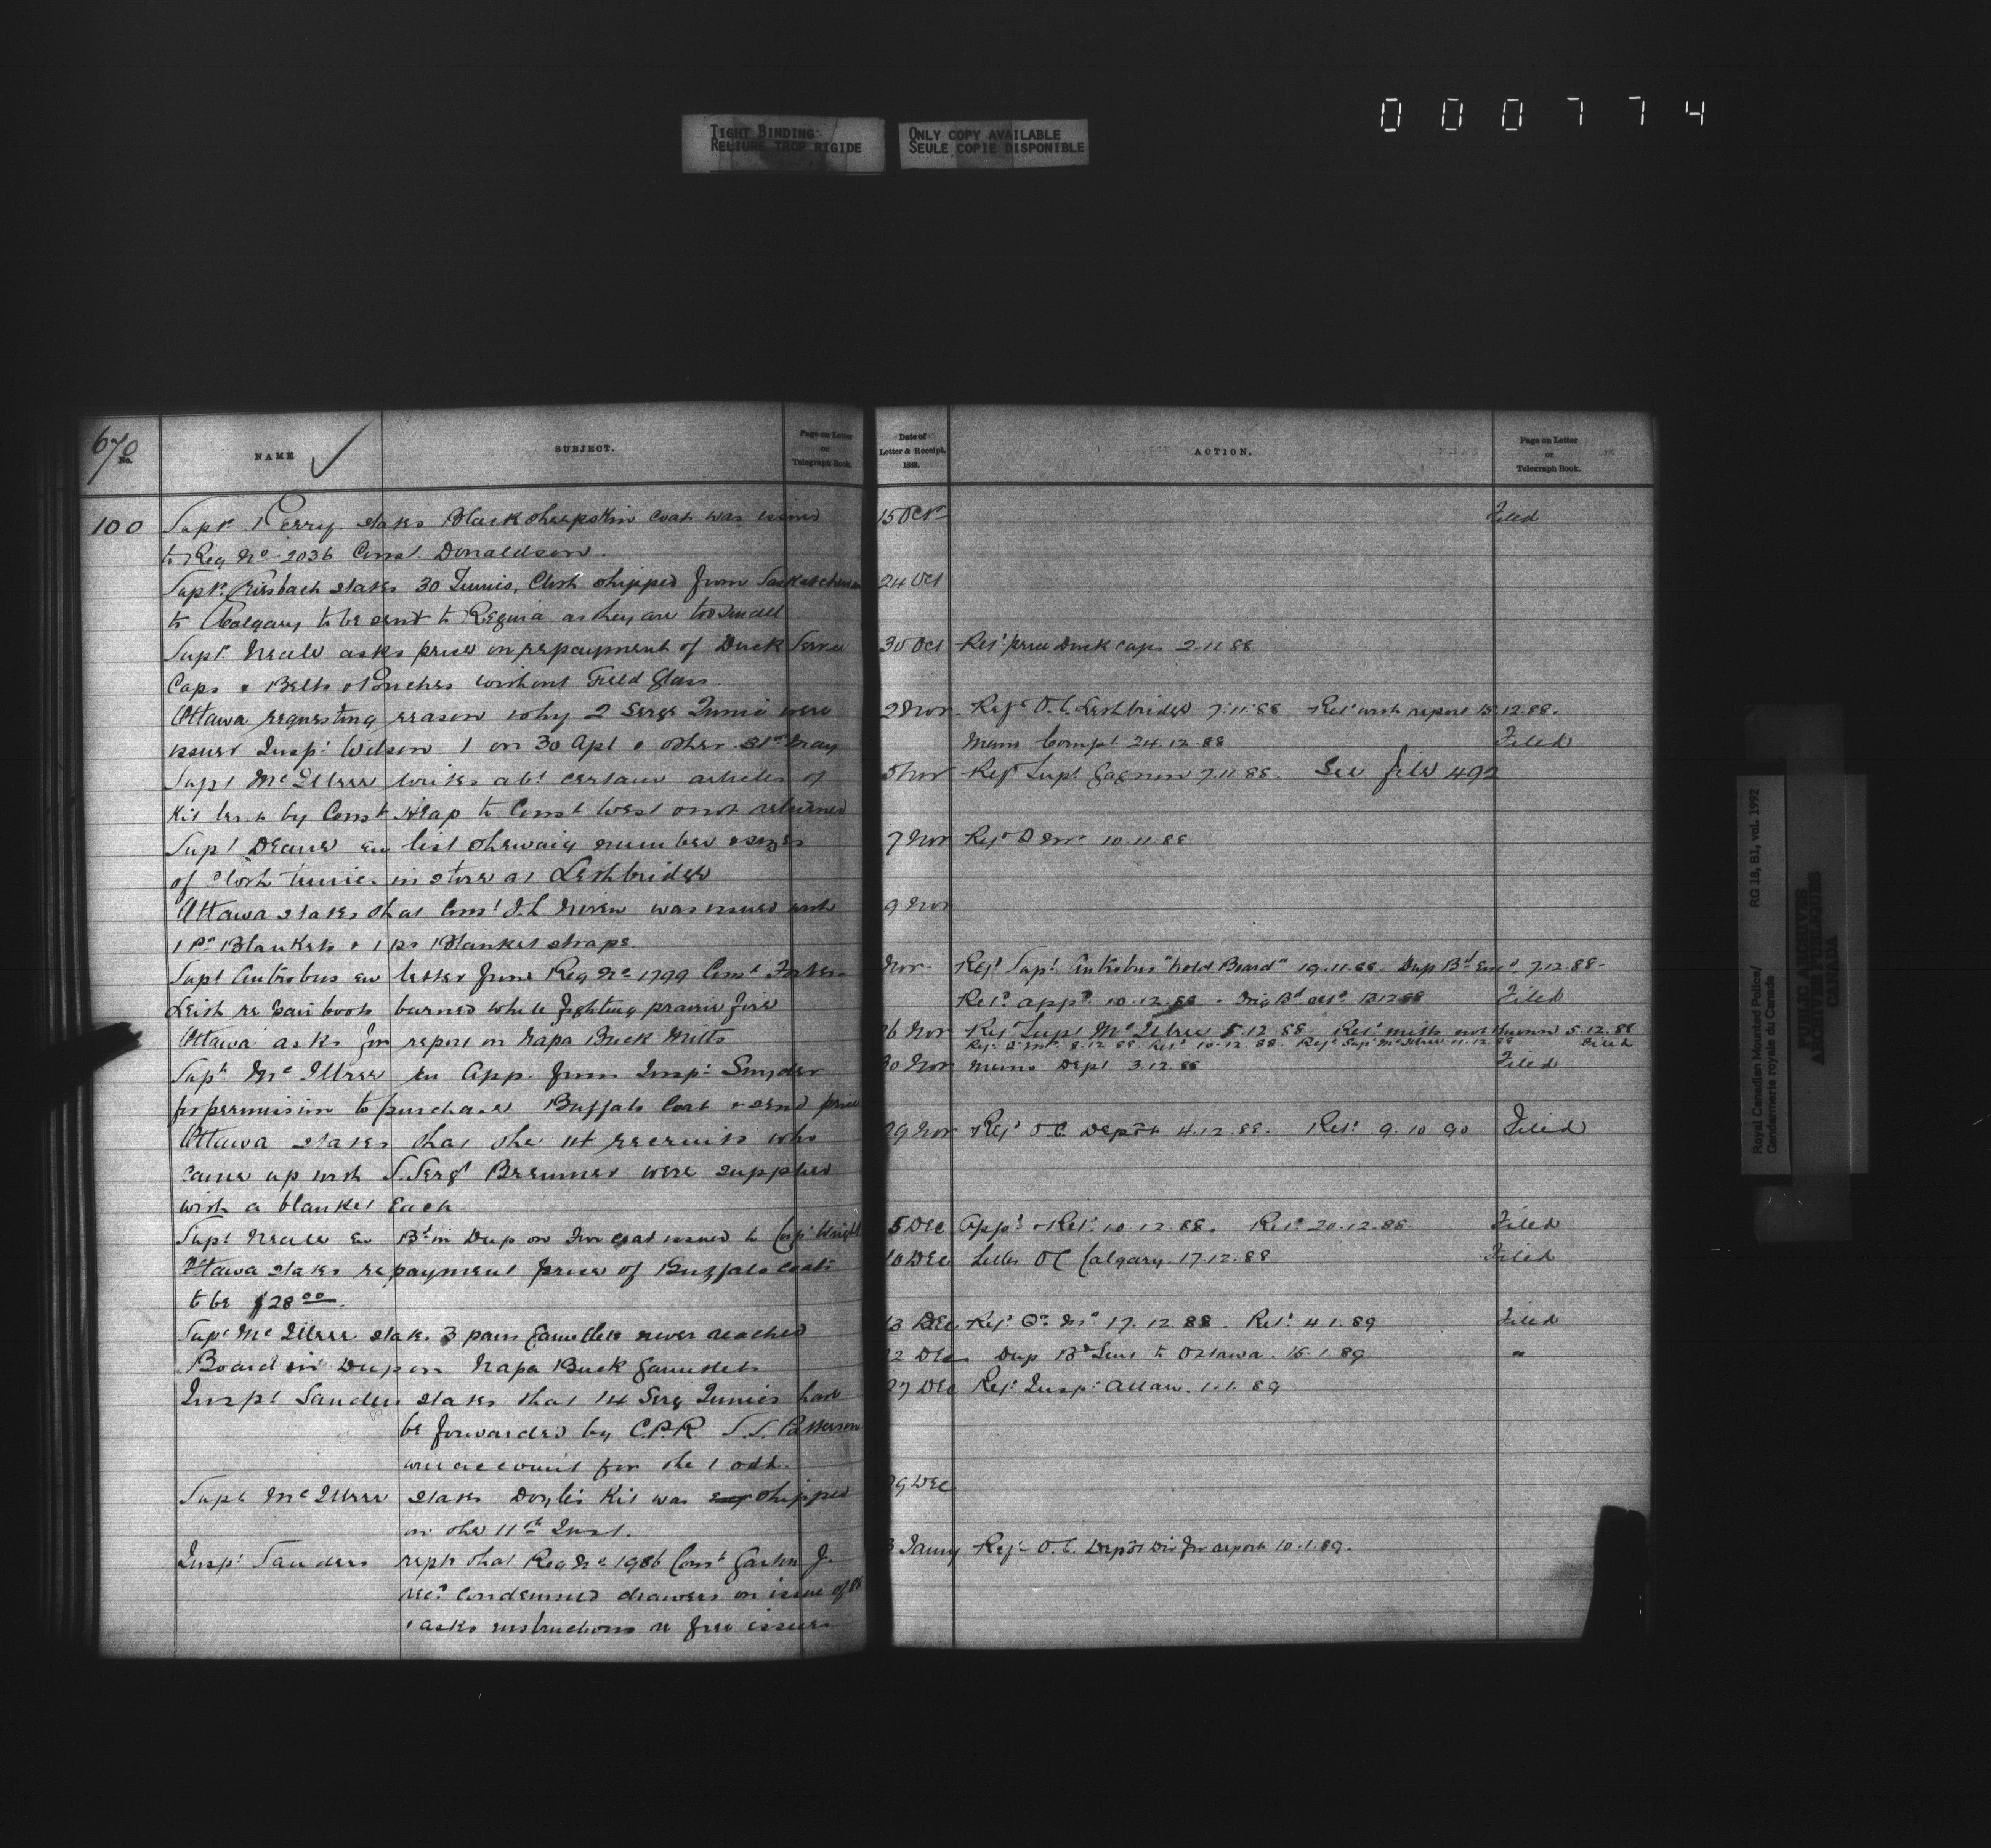 000774
TIGHT BINDING
RELIURE TROP RIGIDE
ONLY COPY AVAILABLE
SEULE COPIE DISPONIBLE
670
No.
NAME
SUBJECT.
Page on Letter
or
Telegraph Book.
100 Supt. Perry states Black sheepskin coat was issued
to Reg No 2036 Const Donaldson.
Supt. states 30 Tunics, Cloth shipped from Saskatchewan
to Calgary to be sent to Regina as they are too small
Supt. Neale asks price on repayment of Duck
Caps & Belts & Pouches without Field Glass
Ottawa requesting reason why 2 Serge Tunics were
issued Inspt. Wilson 1 on 30 Apl & other 31st May
Supt McIllree writes abt certain articles of
Kit lent by Const Heap to Const West & not returned
Supt Deane en list shewing number & sizes
of cloth tunics in store at Lethbridge
Ottawa states that Const was issued with
1 Pr Blankets & 1 pr Blanket straps.
Supt Antrobus en letter from Reg No 1799 Const
Leith re pair boots burned while fighting prairie fire
Ottawa asks for report on Napa Buck Mitts
Supt McIllree en App. from Inspt. Snyder
for permission to purchase Buffalo Coat & send price
Ottawa states that the recruits who
came up with S. Sergt Bremner were supplied
with a blanket each
Supt Neale en Bd in Dup on Fur coat issued to
Ottawa states repayment price of Buffalo Coats
to be $28 00.
Supt McIllree states 3 pairs Gauntlets never reached
Board in Dup on Napa Buck Gauntlets
Inspt Sanders states that 14 Serge Tunics have
be forwarded by C.P.R.
account for the 1 odd.
Supt McIllree states Doyle's Kit was shipped
on the 11th Inst.
Inspt Sanders repts that Reg No 1986 Const
recd condemned drawers on issue of 88
& asks instructions re free issues
Date of
Letter & Receipt,
1888.
ACTION.
Page on Letter
or
Telegraph Book.
15 Oct Filed
24 Oct
30 Oct Ret price Duck caps 2.11.88
2 Nov. Refd O.C. Lethbridge 7.11.88 Retd with report 15.12.88.
Memo Compt 24.12.88 Filed
5 Nov Refd Supt Gagnon 7.11.88. See file 492
7 Nov Refd 10.11.88
9 Nov
Nov Refd Supt Antrobus "hold Board" 19.11.88 Dup Bd 7.12.88
Retd appd 10.12.88 Filed
26 Nov Refd Supt McIllree 5.12.88 Retd mitts not known 5.12.88
Refd 8.12.88 Retd 10.12.88. Refd Supt McIllree 11.12.88 Filed
30 Nov Memo Dept 3.12.88 Filed
29 Nov Refd O.C. Depôt 4.12.88. Retd 9.10.90 Filed
5 Dec Appd & Retd 10.12.88. Retd 20.12.88 Filed
10 Dec Letter OC Calgary 17.12.88 Filed
13 Dec Refd Qr. Mr 17.12.88. Retd 4.1.89 Filed
12 Dec Dup Bd Sent to Ottawa. 16.1.89 "
27 Dec Refd Inspt Allan. 1.1.89
29 Dec
3 Janny Refd O.C. Depôt Div for report 10.1.89.
Royal Canadian Mounted Police/ RG 18, B1, vol. 1992
Gendarmerie royale du Canada
PUBLIC ARCHIVES
ARCHIVES PUBLIQUES
CANADA